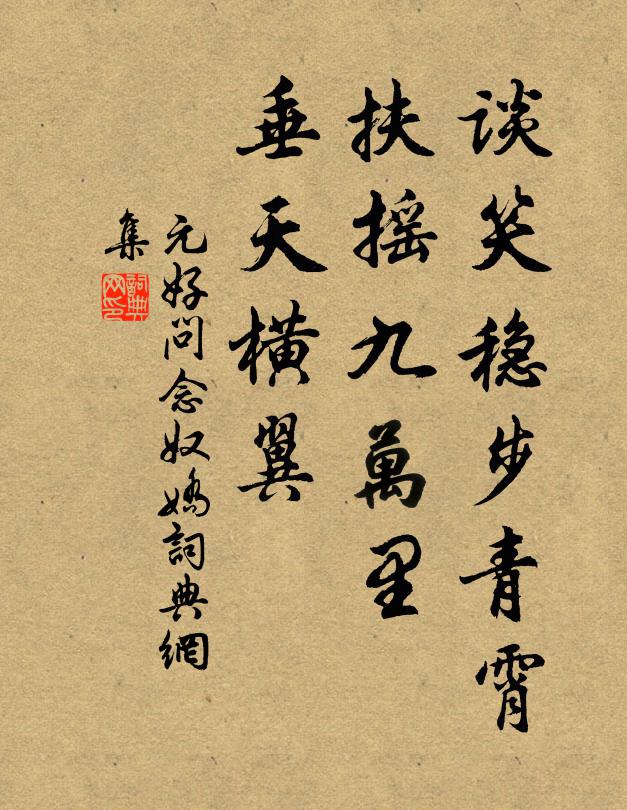 谈笑稳步青霄
扶摇九萬里
垂天横翼
元好问念奴嬌詞典網
集
詞典
网印